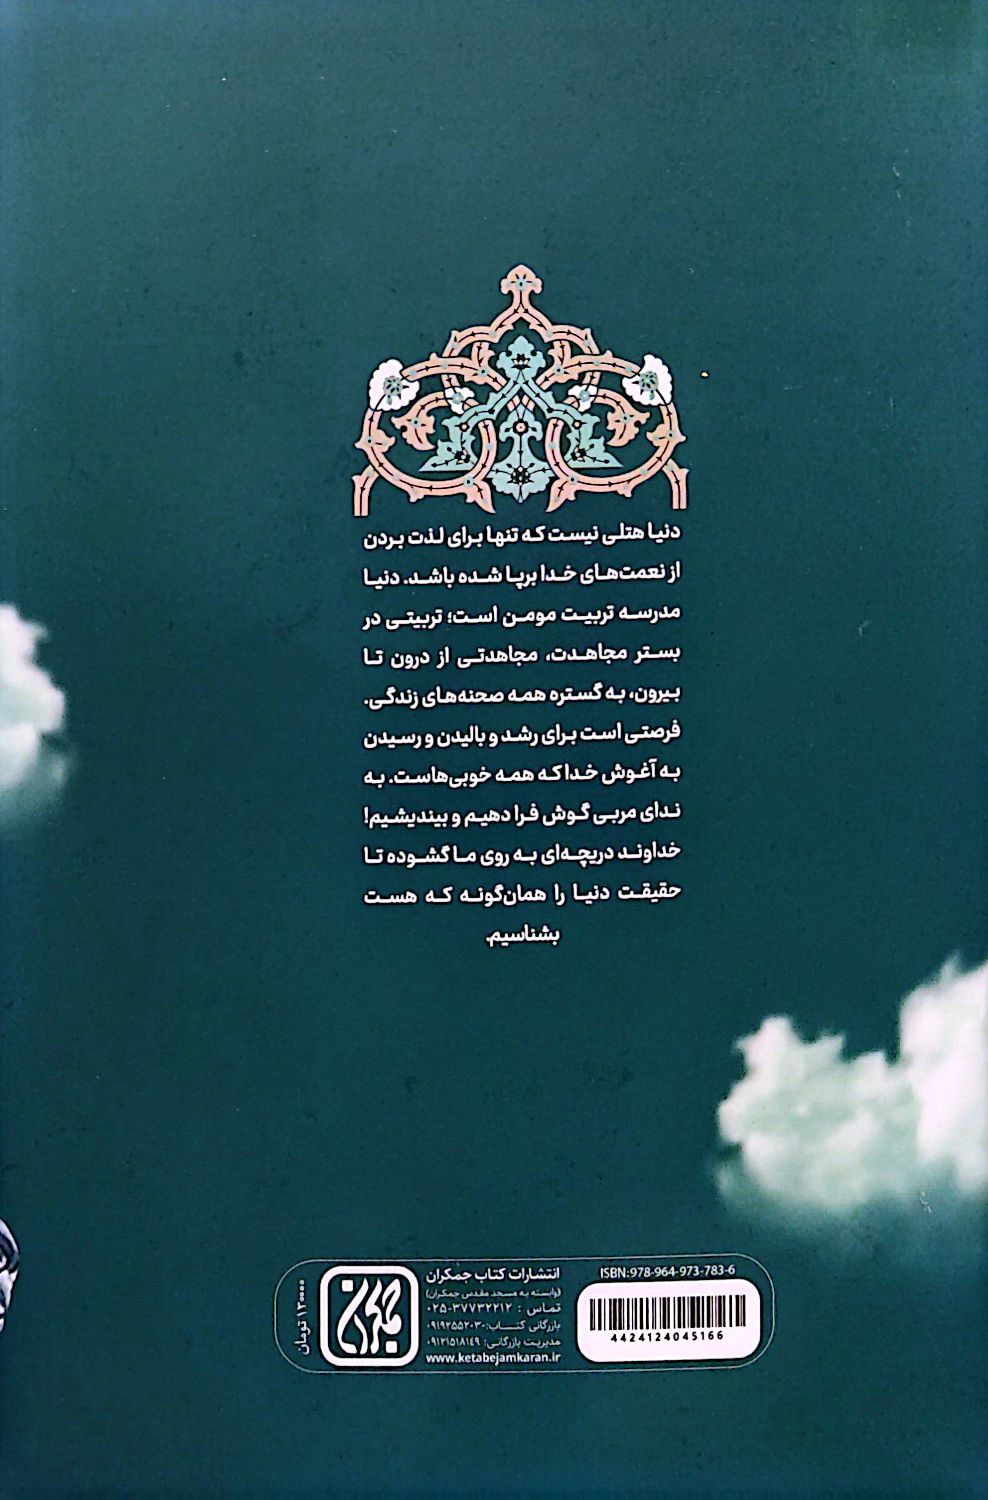 دنیا هتلی نیست که تنها برای لذت بردن
از نعمت‌های خدا برپا شده باشد. دنیا
مدرسه تربیت مومن است؛ تربیتی در
بستر مجاهدت، مجاهدتی از درون تا
بیرون، به گستره همه صحنه‌های زندگی.
فرصتی است برای رشد و بالیدن و رسیدن
به آغوش خدا که همه خوبی‌هاست. به
ندای مربی گوش فرا دهیم و بیندیشیم!
خداوند دریچه‌ای به روی ما گشوده تا
حقیقت دنیا را همان‌گونه که هست
بشناسیم.
ISBN: 978-964-973-783-6
4424124045166
انتشارات کتاب جمکران
(وابسته به مسجد مقدس جمکران)
تماس : ۰۲۵-۳۷۷۳۲۲۱۲
بازرگانی کتاب: ۰۹۱۹۲۵۵۲۰۳۰
مدیریت بازرگانی: ۰۹۱۲۱۵۱۸۱۴۹
www.ketabejamkaran.ir
جمکران
۱۳۰۰۰۰ تومان